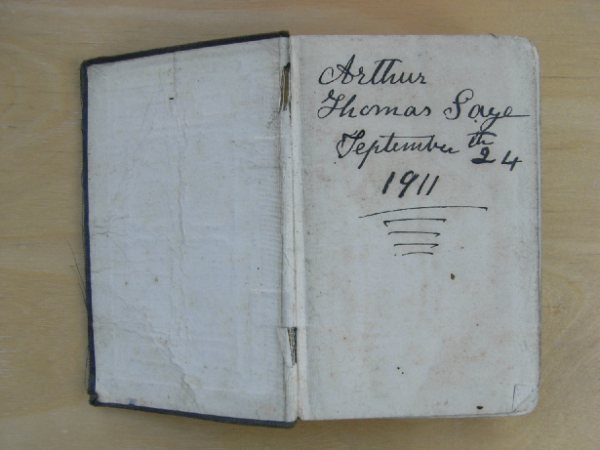 Arthur
Thomas Saye
September 24th
1911